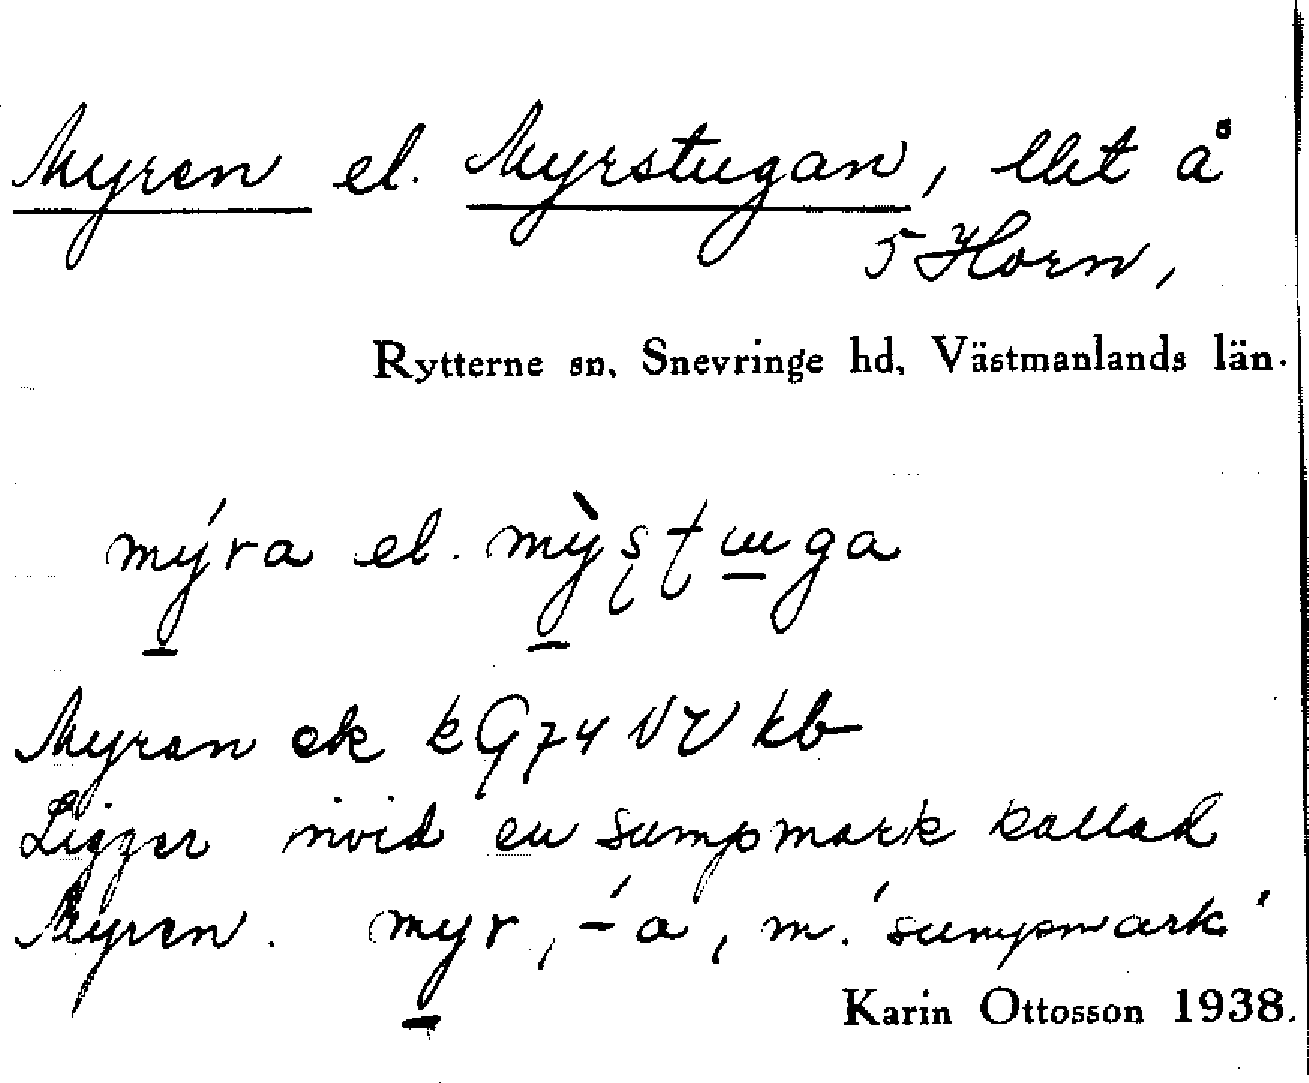 Myren el. Myrstugan, lht å
5 Horn,
Rytterne sn, Snevringe hd, Västmanlands län.
mýra el. mỳstuga
Myran ek k G74 VV kb
Ligger invid en sumpmark kallad
Myren. myr, -́a, m. 'sumpmark'
Karin Ottosson 1938.